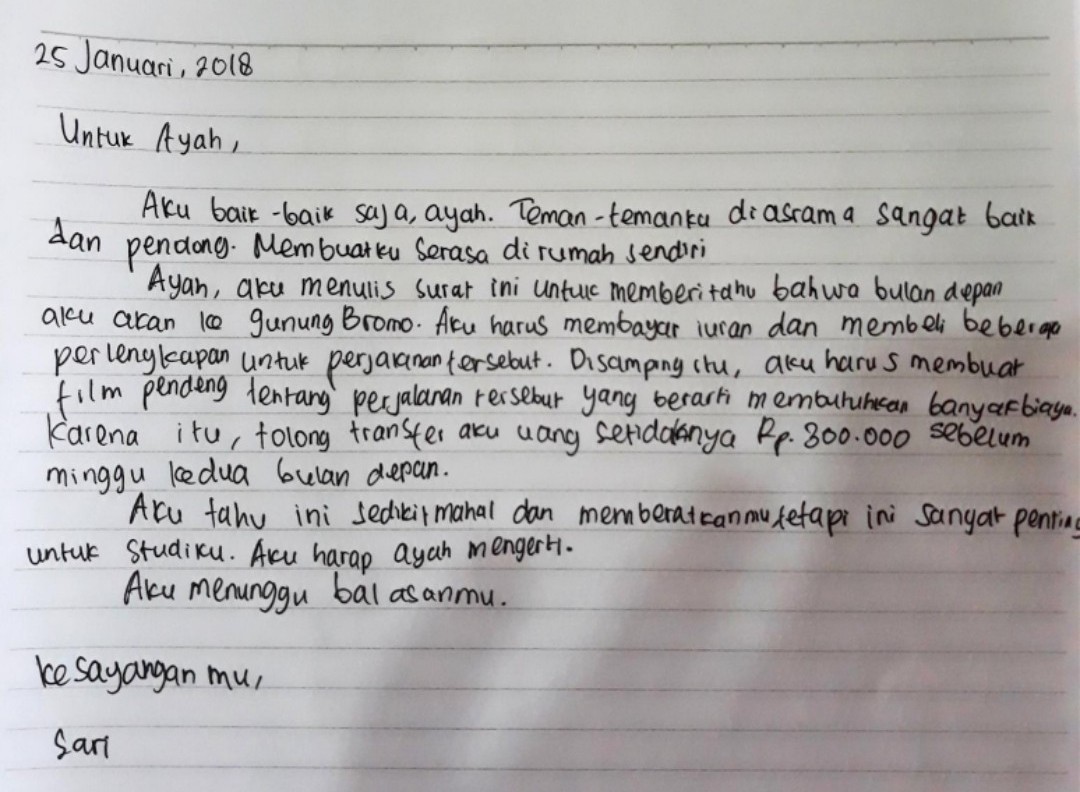 25 Januari, 2018
Untuk Ayah,
Aku baik-baik saja, ayah. Teman-temanku diasrama sangat baik
dan pendang. Membuatku serasa di rumah sendiri
Ayah, aku menulis surat ini untuk memberitahu bahwa bulan depan
aku akan ke gunung Bromo. Aku harus membayar iuran dan membeli beberapa
perlengkapan untuk perjalanan tersebut. Disamping itu, aku harus membuat
film pendeng tentang perjalanan tersebut yang berarti membutuhkan banyak biaya.
Karena itu, tolong transfer aku uang setidaknya Rp. 300.000 sebelum
minggu kedua bulan depan.
Aku tahu ini sedikit mahal dan memberatkanmu tetapi ini sangat penting
untuk studiku. Aku harap ayah mengerti.
Aku menunggu balasanmu.
kesayanganmu,
Sari